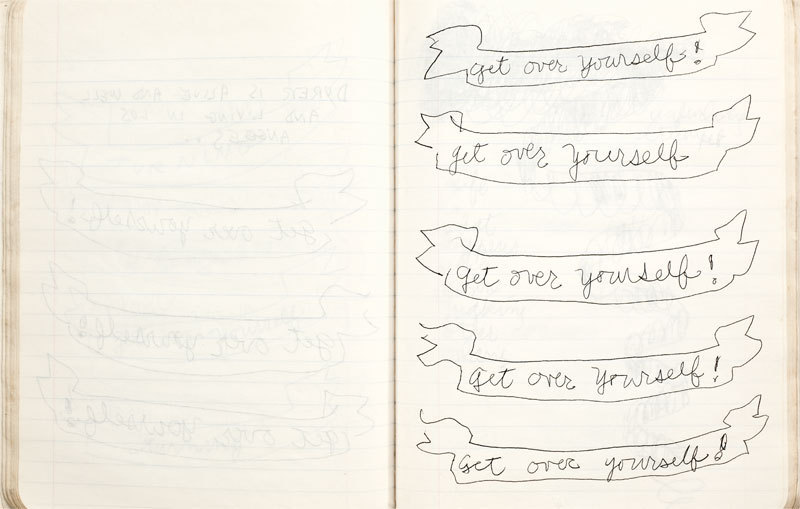 get over yourself!
get over yourself
get over yourself!
get over yourself!
get over yourself!